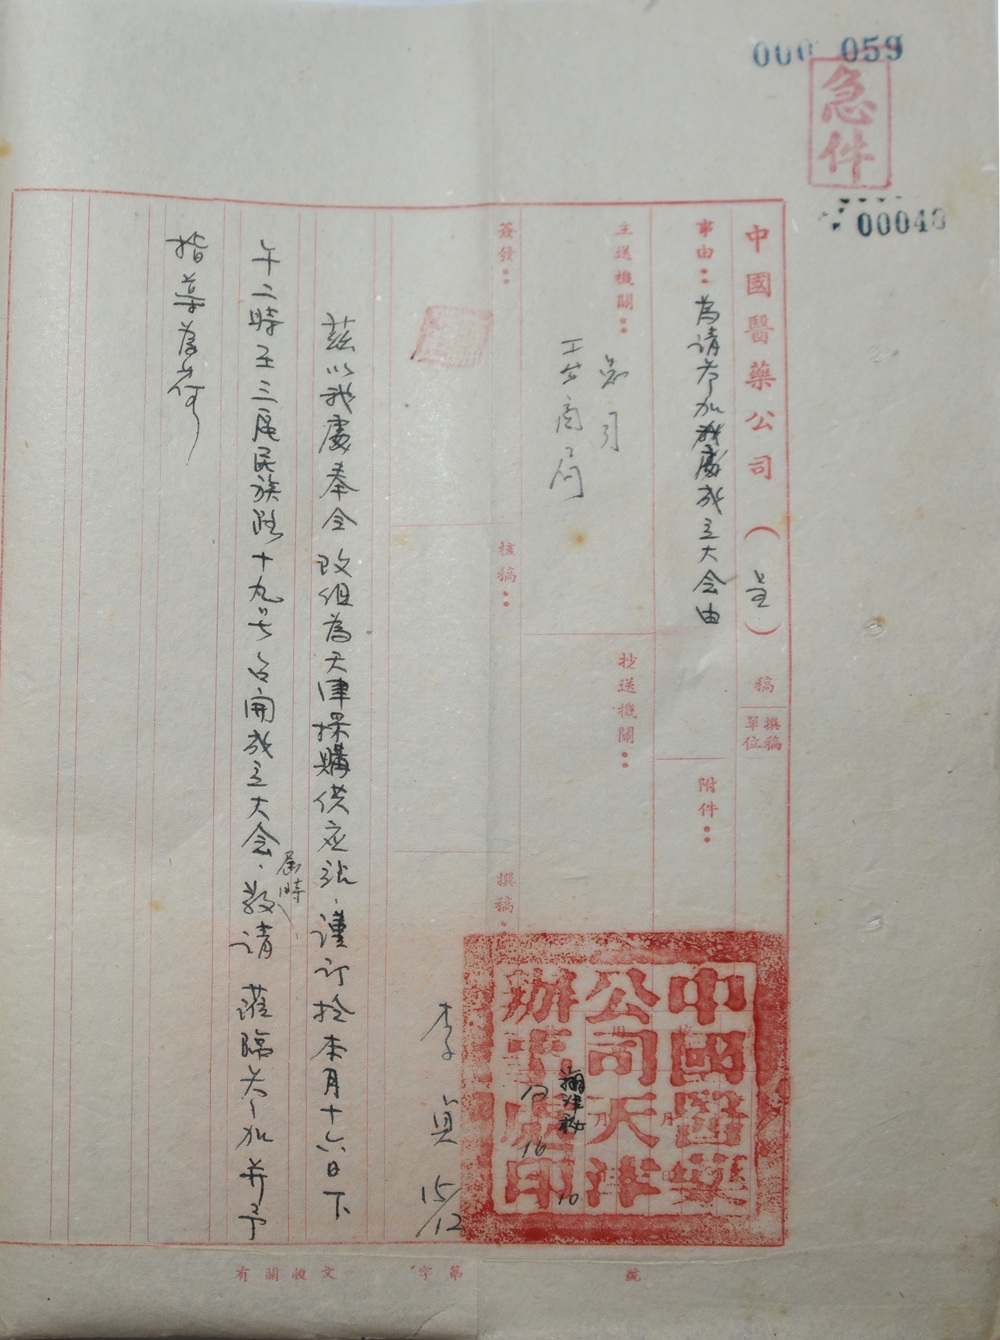 000 059
急件
00048
中國醫藥公司（呈）稿
撰稿單位
事由：為请参加我處成立大会由
附件：
主送機關：
工商局
抄送機關：
簽發：
核稿：
撰稿：
李
15/12
中國醫藥
公司天津
辦事處印
12 16
10
兹以我處奉令改组為天津採購供应站，谨订於本月十六日下
午二時在三区民族路十九号召開成立大会，届時敬请 蒞臨参加并予
指导為荷
號
第 字
有關收文